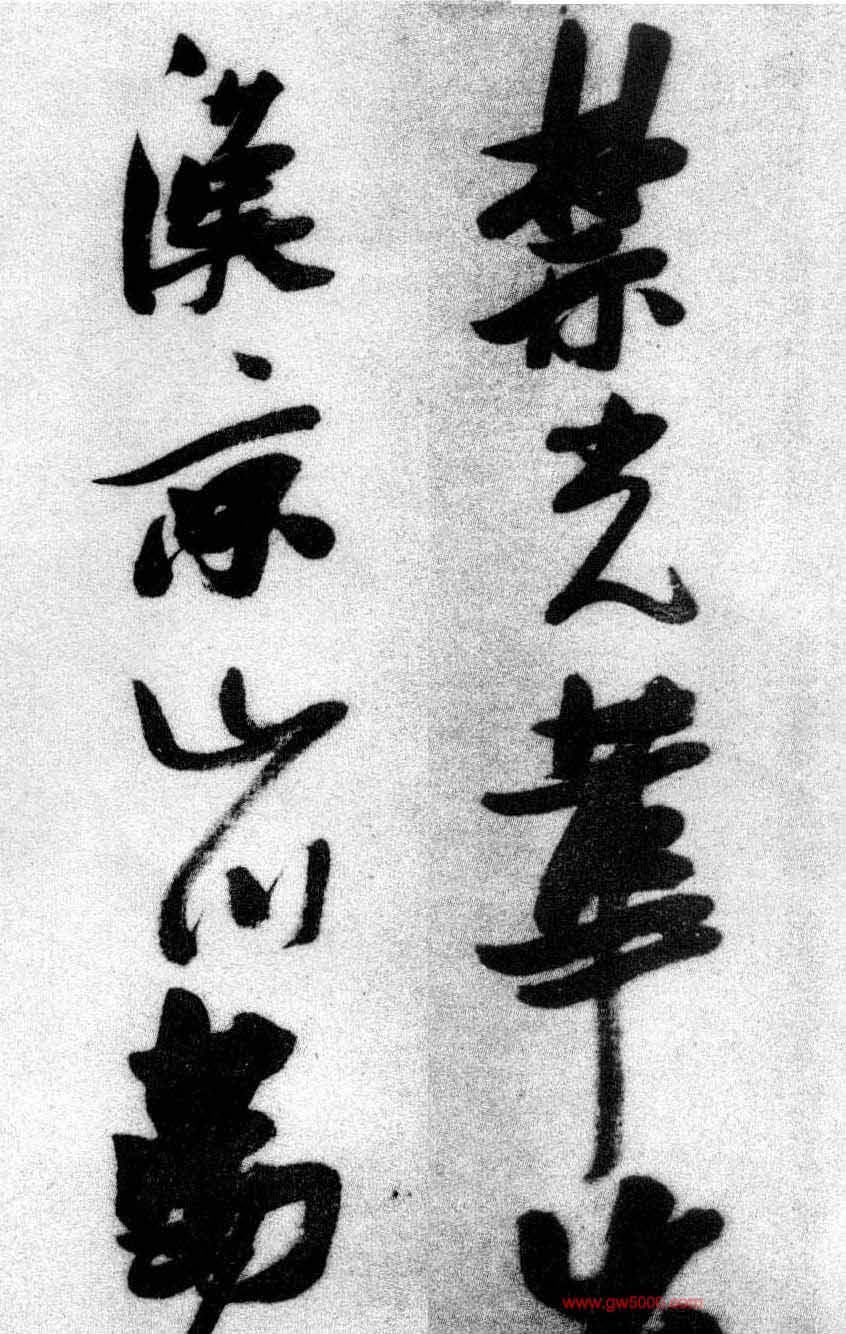 禁光華
漢京山川萬
www.gw5000.com